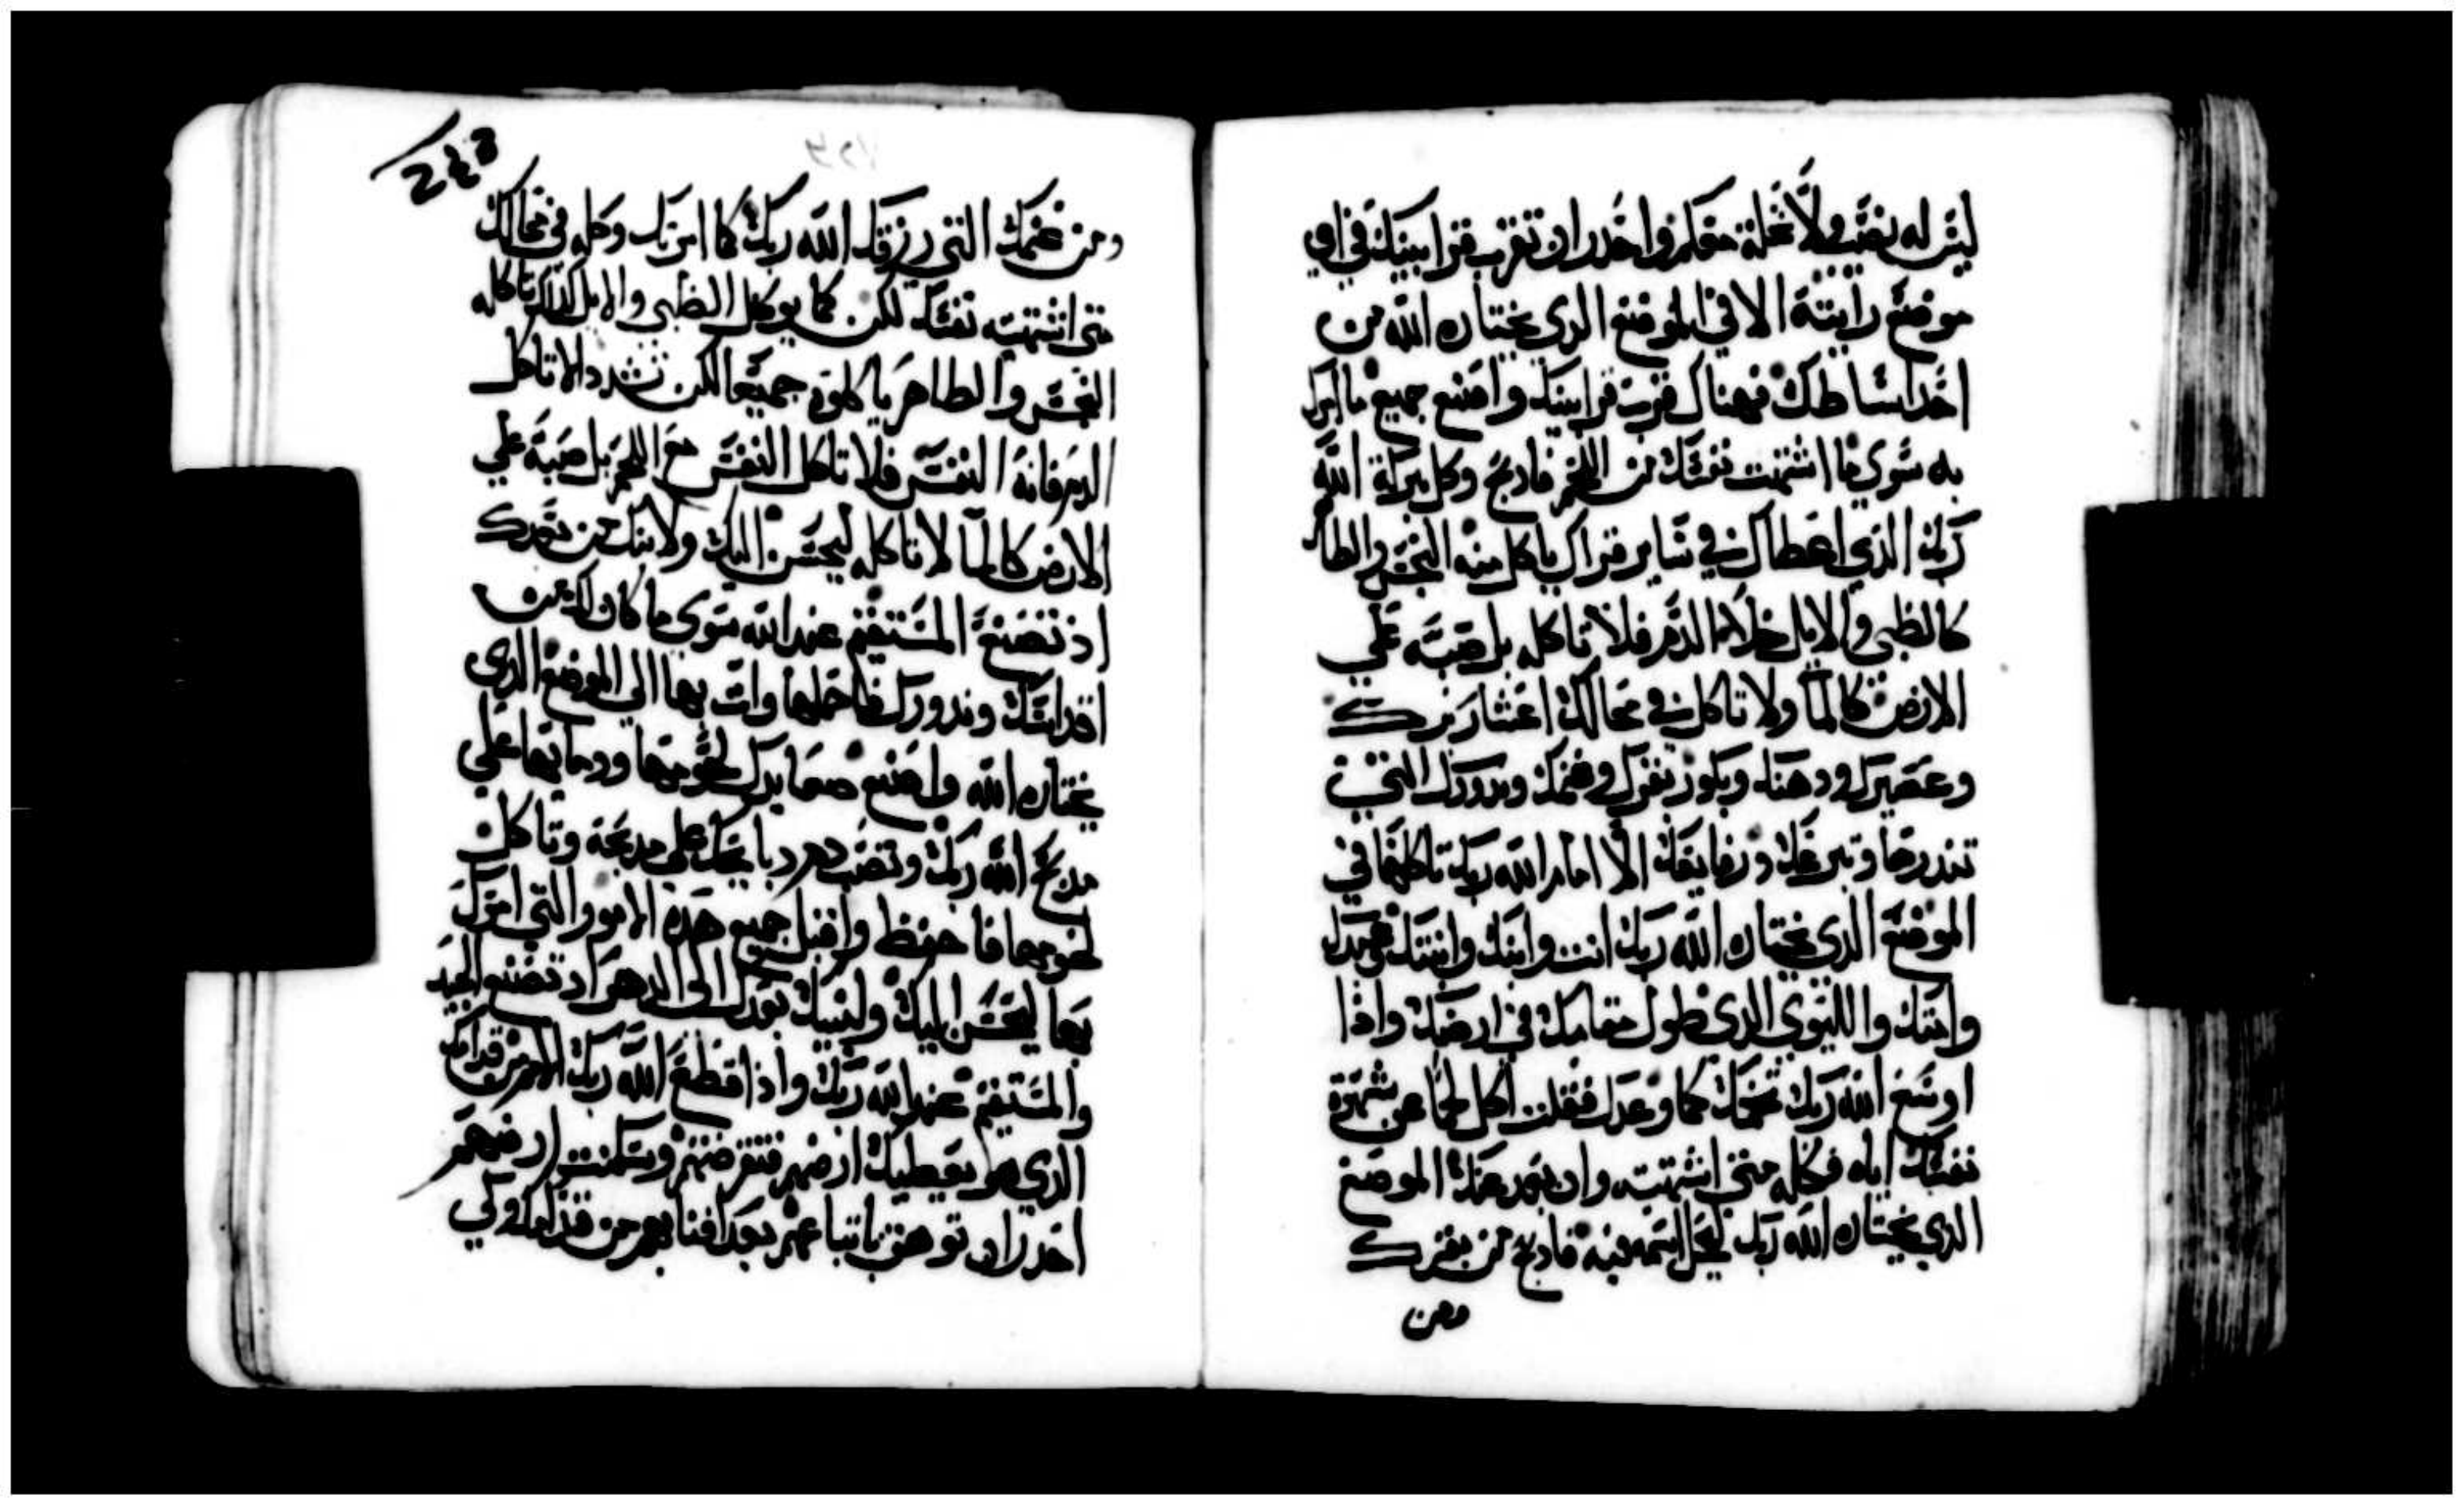 ليس له نصيب ولا نحلة معكم واحدر ان تقرب قرابينك في اي
موضع رايته الا في الموضع الدي يختاره الله من
احد اسباطك فهناك قرب قرابينك واصنع جميع ما امرك
به سوي ما اشتهت نفسك من اللحم فادبح وكل بركة الله
ربك الذي اعطاك في ساير قراك ياكل منه النجس والطاهر
كالظبي والايل خلا الدم فلا تاكله بل صبه علي
الارض كالما ولا تاكل في محالك اعشار برك
وعصيرك ودهنك وبكور بقرك وغنمك وندورك التي
تندرها وتبرعك ورفايعك الا امام الله ربك تاكلها في
الموضع الدي يختاره الله ربك انت وابنك وابنتك وعبدك
وامتك والليوي الدي طول مقامك في ارضك واذا
اوسع الله ربك تخمك كما وعدك فقلت اكل لحما عن شهوة
نفسك اياه فكله متي اشتهيته وان بعد عنك الموضع
الدي يختاره الله ربك ليحل اسمه فيه فادبح من بقرك
ومن
243
ومن غنمك التي رزقك الله ربك كما امرتك وكله في محالك
متي اشتهته نفسك لكن كما يوكل الظبي والايل كذلك تاكله
النجس والطاهر ياكلوه جميعا لكن تشدد الا تاكل
الدم فانه النفس فلا تاكل النفس مع اللحم بل صبه علي
الارض كالما لا تاكله ليحسن اليك ولابنك من بعدك
اذ تصنع المستقيم عند الله سوي ما كان لك من
اقداسك وندورك فاحملها وات بها الي الموضع الدي
يختاره الله واصنع صعايدك لحومها ودمايها علي
مدبح الله ربك وتصب دم دبايحك علي مدبحه وتاكل
لحومها فاحفظ واقبل جميع هده الامور التي امرك
بها ليحسن اليك ولبنيك بعدك الي الدهر اد تصنع الجيد
والمستقيم عند الله ربك واذا قطع الله ربك الامم من قدامك
الدي هو يعطيك ارضهم فتقرضهم وسكنت ارضهم
احدر ان توهق باتباعهم بعد افنايهم من قدامك وكي